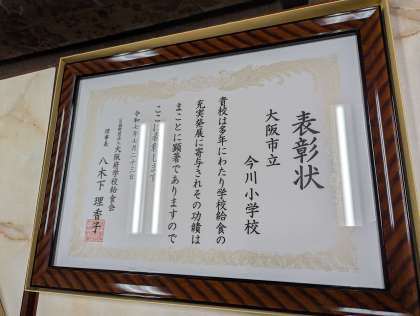 表彰状
大阪市立
今川小学校
貴校は多年にわたり学校給食の
充実発展に寄与されその功績は
まことに顕著でありますので
ここに表彰します
令和七年七月二十三日
公益財団法人大阪府学校給食会
理事長 八木下 理香子